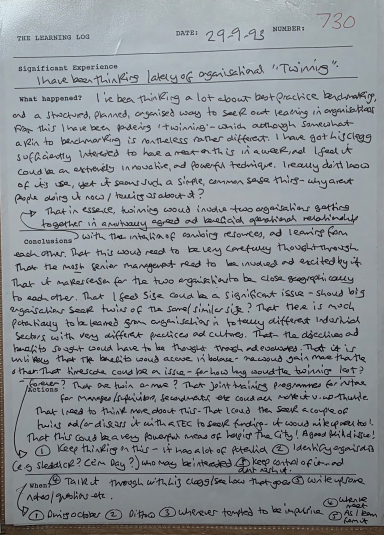 730
THE LEARNING LOG DATE: 29-9-93 NUMBER:
Significant Experience
I have been thinking lately of organisational "Twinning".
What happened? I've been thinking a lot about best practice benchmarking,
and a structured, planned, organised way to seek out learning in organisations
From this I have been pondering 'twinning' - which although somewhat
akin to benchmarking is nonetheless rather different. I have got his clegg
sufficiently interested to have a meet on this in a week. I feel it
could be an extremely innovative, and powerful technique. I really don't know
of its use, yet it seems such a simple, common sense thing - why aren't
people doing it now / texting us about it?
That in essence, twinning would involve two organisations getting
together in a mutually agreed and beneficial operational relationship
Conclusions with the intention of combining resources, and learning from
each other. That this would need to be very carefully thought through.
That the most senior management need to be involved and excited by it.
That it makes sense for the two organisations to be close geographically
to each other. That I feel size could be a significant issue - should big
organisations seek twins of the same/similar size? That there is much
potentially to be learned from organisations in totally different industrial
sectors with very different practices and cultures. That the objectives and
benefits sought would have to be thought through and evaluated. That it is
unlikely that the benefits would accrue in balance - one would gain more than the
other. That timescale could be an issue - for how long would the twinning last?
forever? That are twin or more? That joint training programmes for instance
Actions for Managers/Supervisors, Secondments etc could all make it v. worthwhile
That I need to think more about this. That I could then seek a couple of
twins and/or discuss it with a TEC to seek funding - it would
That this could be a very powerful means of helping the City! A good idea/issue!
① Keep thinking on this - it has a lot of potential ② Identify organisations
(e.g. Day?) who may be interested ③ keep control of it and
don't rush it.
When? ④ Talk it through with his Clegg/see how that goes ⑤ Write up some
notes/questions etc.
① During October ② Ditto ③ whenever tempted to be impulsive ④ when we meet ⑤ As I learn from it